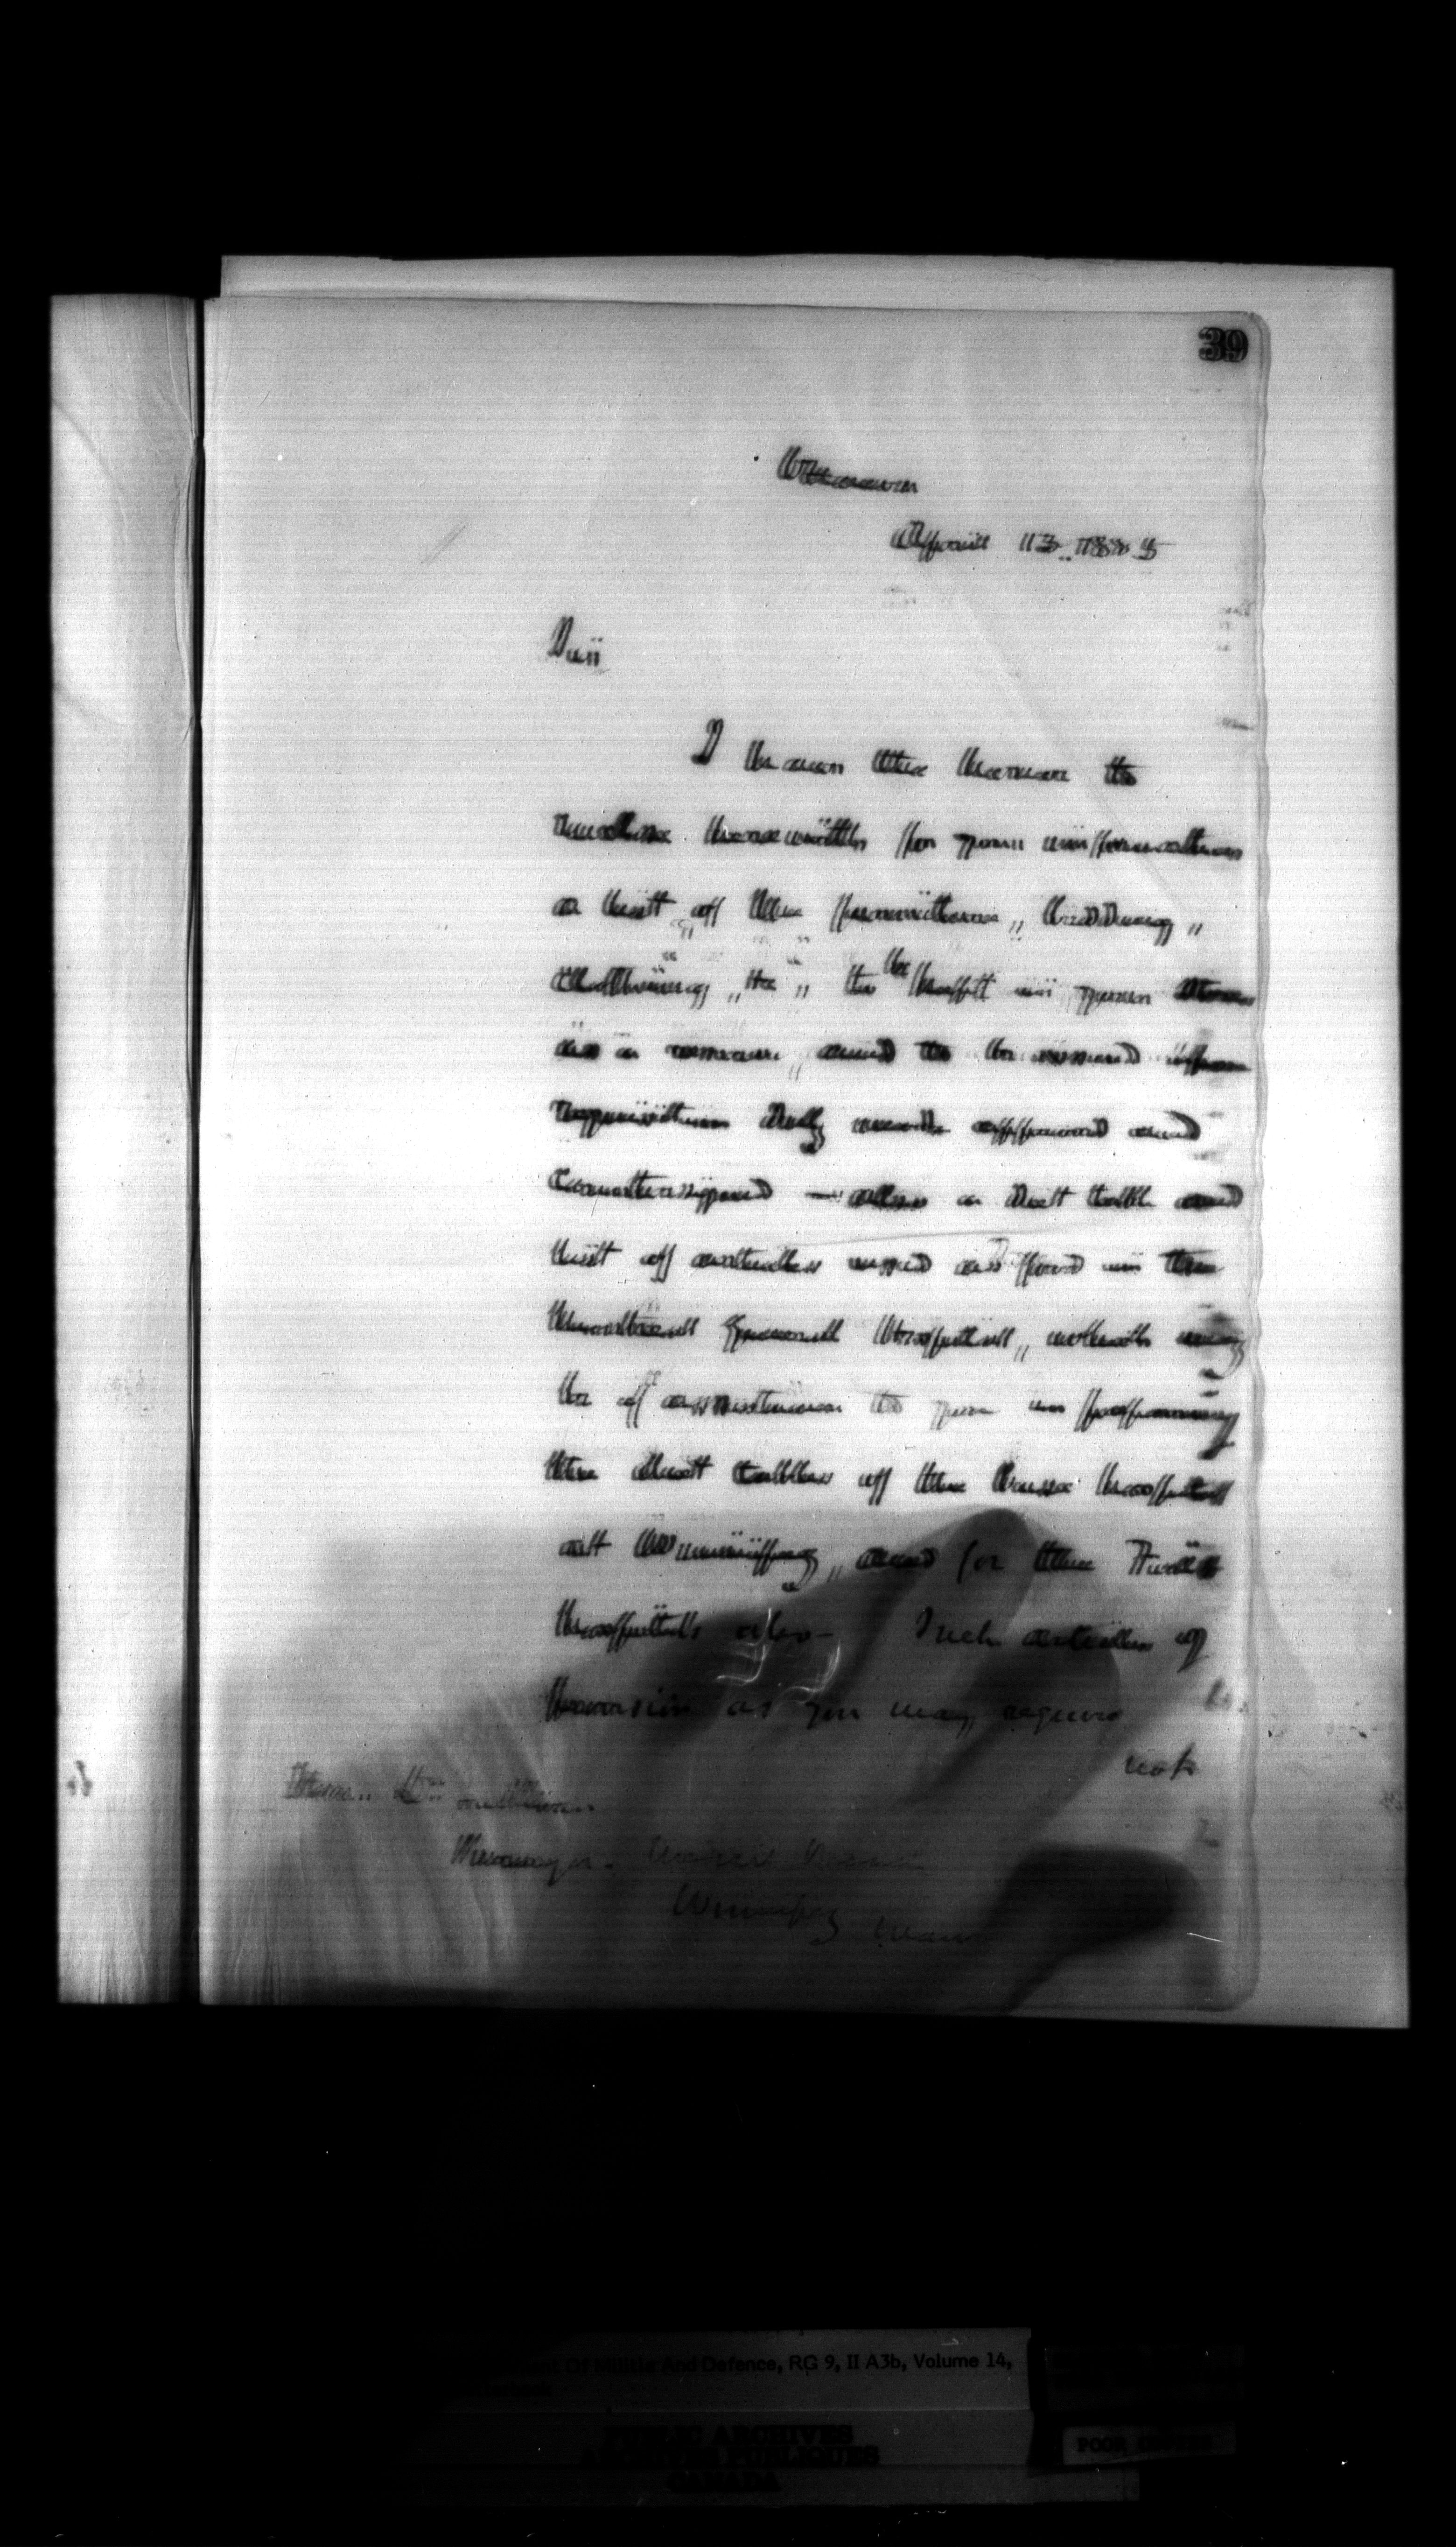 39
Ottawa
April 13. 1885
Sir
I have the honour to
enclose herewith for your information
a list of the furniture, bedding,
clothing, &c, to be kept in your store
as a reserve, and to be issued upon
requisition duly approved and
countersigned — also a diet table and
list of articles used as food in the
Montreal General Hospital, which may
be of assistance to you in preparing
the diet tables of the Base Hospital
at Winnipeg, and for the Field
Hospitals also - Such articles of
as you may require
not
Manager. Medical
Winnipeg Man
Of Militia And Defence, RG 9, II A3b, Volume 14,
PUBLIC ARCHIVES
ARCHIVES PUBLIQUES
CANADA
POOR